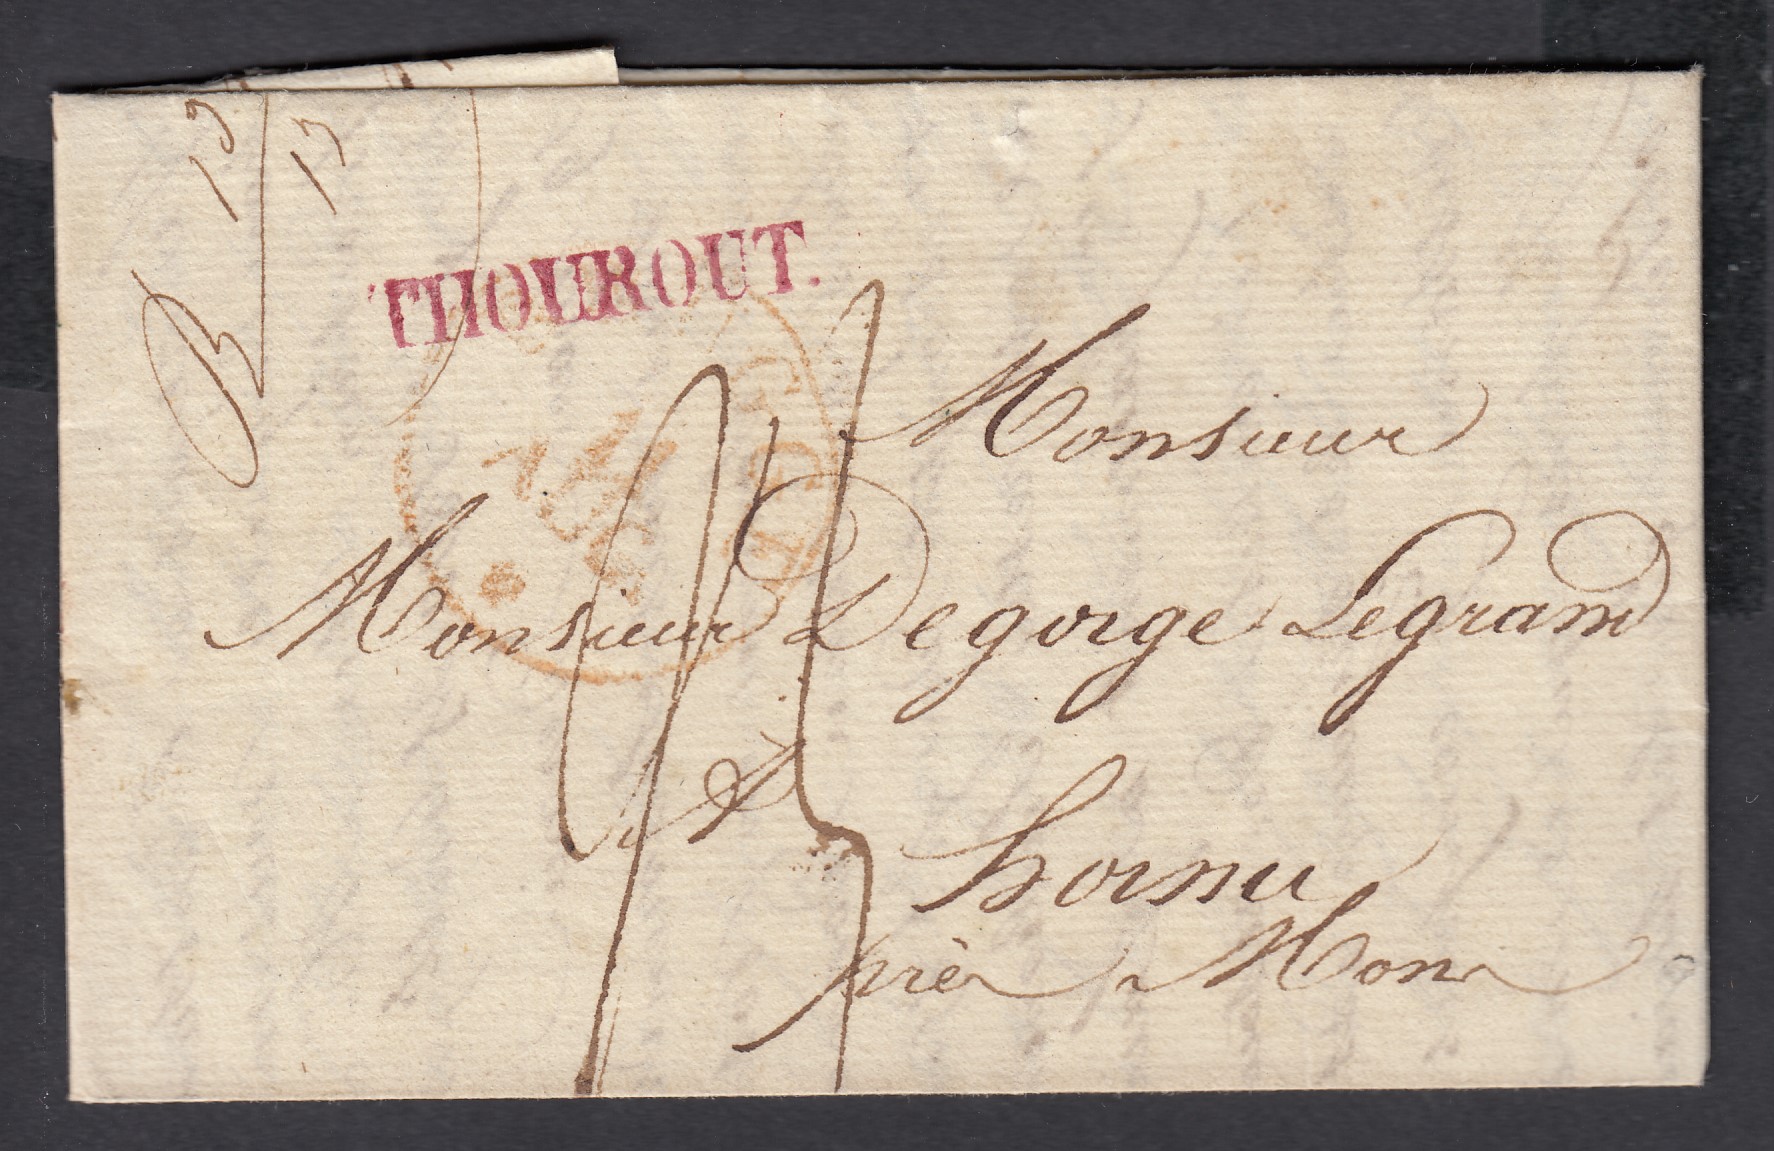 B
THOUROUT.
Monsieur
Monsieur Degorge Legrand
A
hornu
près Mons